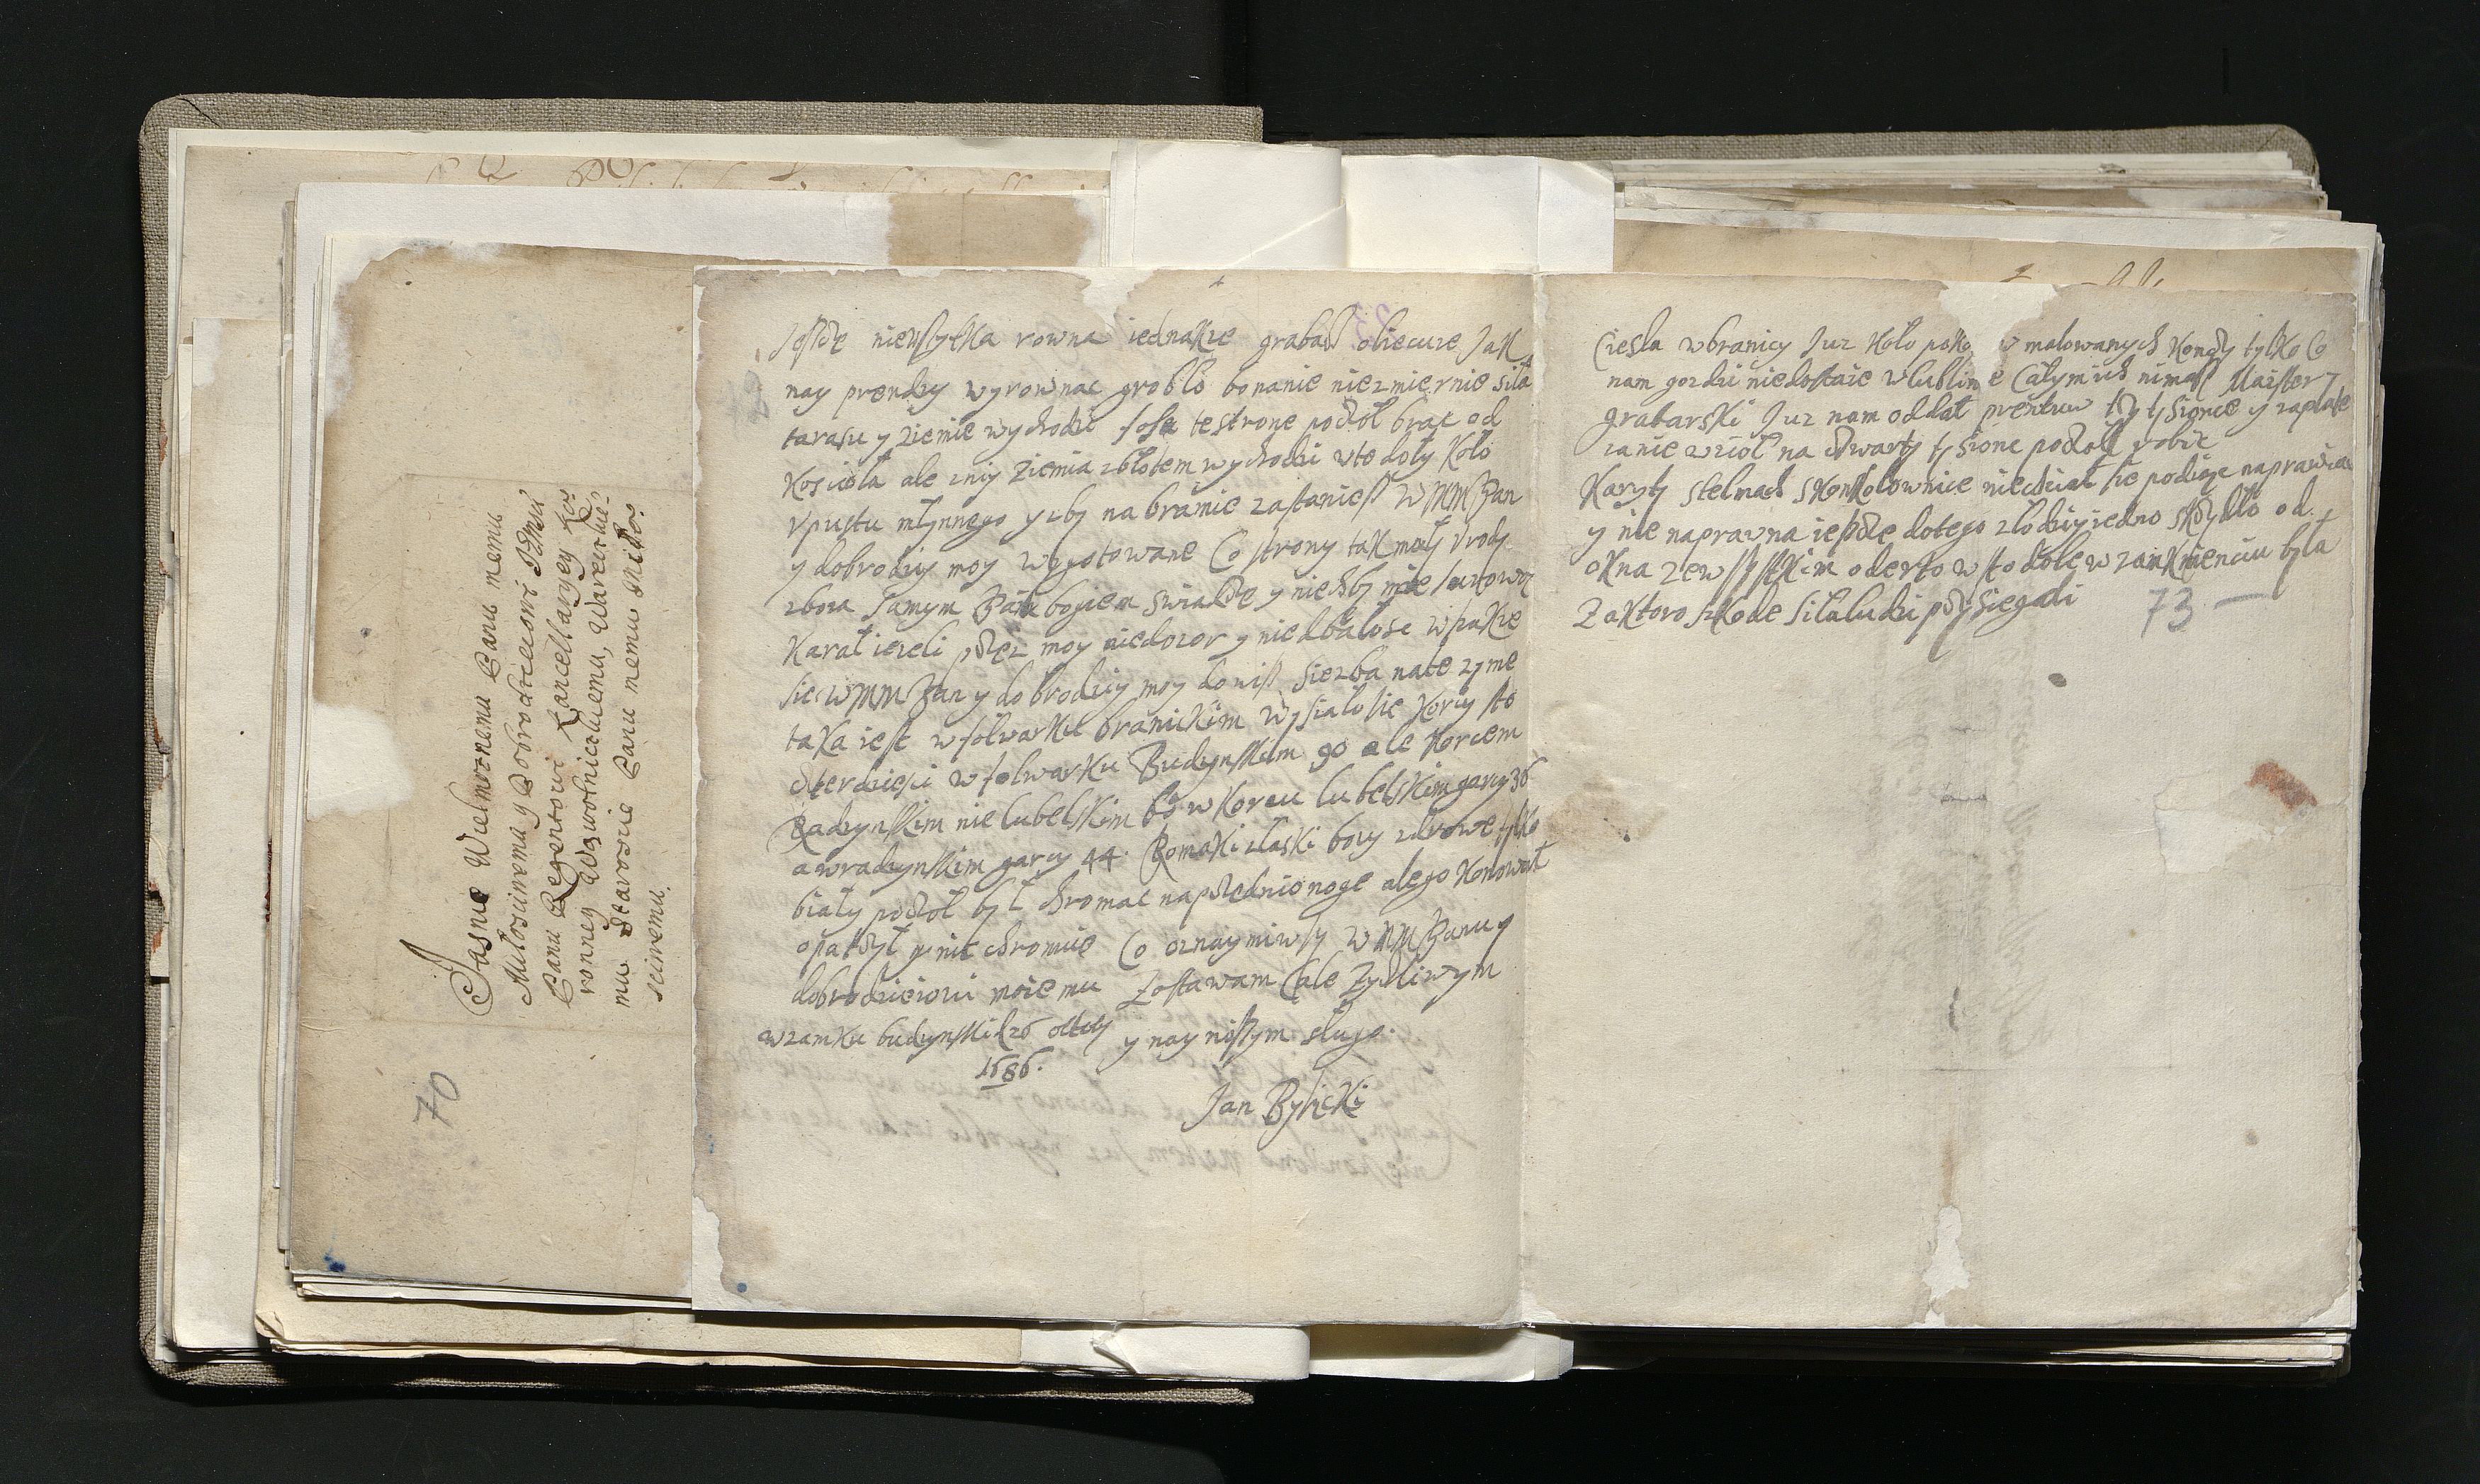 Jasnie Wielmoznemu Panu memu
Miłosciwemu y Dobrodzieiowi Jmsci
Panu Regentowi Kancellaryey Ko
ronney Wąwolnickiemu, Wareckie
mu Staroscie Panu memu Miłos
ciwemu.
70
Jescze niewszytka rowna iednakze grabarz obiecuie Jak
nay prendzy wyrownac groblo bo nanie niezmiernie siła
tarasu y ziemie wychodzi fose te strone poczoł brac od
Kosciola ale zniy ziemia zbłotem wychodzi w te doły koło
Vpustu młynnego y zby na bramie zastaniesz WMM Pan
y dobrodziy moy wygotowane Co strony tak mały Vrody
zboza samym Panem bogiem swiadcze y niechby mie surowo
Karał iezeli przez moy niedozor y niedbałosc wszakze
sie WMM Pan y dobrodziy moy doniosł siezba na te zyme
taka iest w folwarku branickim wysiało sie korcy sto
czterdziesci w folwarku Budzynskim 90 ale korcem
Radzynskim nie lubelskim bo w korcu lubelskim garcy 36
a w radzynskim garcy 44. Romaki zlaski bozy zdrowe tylko
biały poczoł był chromac na przednio noge ale go konował
opatrzył y nic chromie Co oznaymiwszy WMM Panu y
dobrodzieiowi moiemu Zostawam Cale Zyczliwym
w zamku budzynskim 26 octob y nay niszym sługo.
1686.
Jan Bylicki
Ciesla wbranicy Juz koło poko w malowanych konczy tylko Co
nam gozdzi niedostaie wlublinie Całym ich nimasz Maister
grabarski Juz nam oddał prentuw trzy tysionce y zapłate
zanie wzioł na czwarty tysionc poczoł robic
Karyty stelmach skonskolownice niechciał sie podiąc naprawiac
y nie naprawna iescze dotego złodziy iedno skrzydło od
okna zewszystkim oderło w stodole w zamknieniu była
Zaktoro szkode siła ludzi przysiegali
73